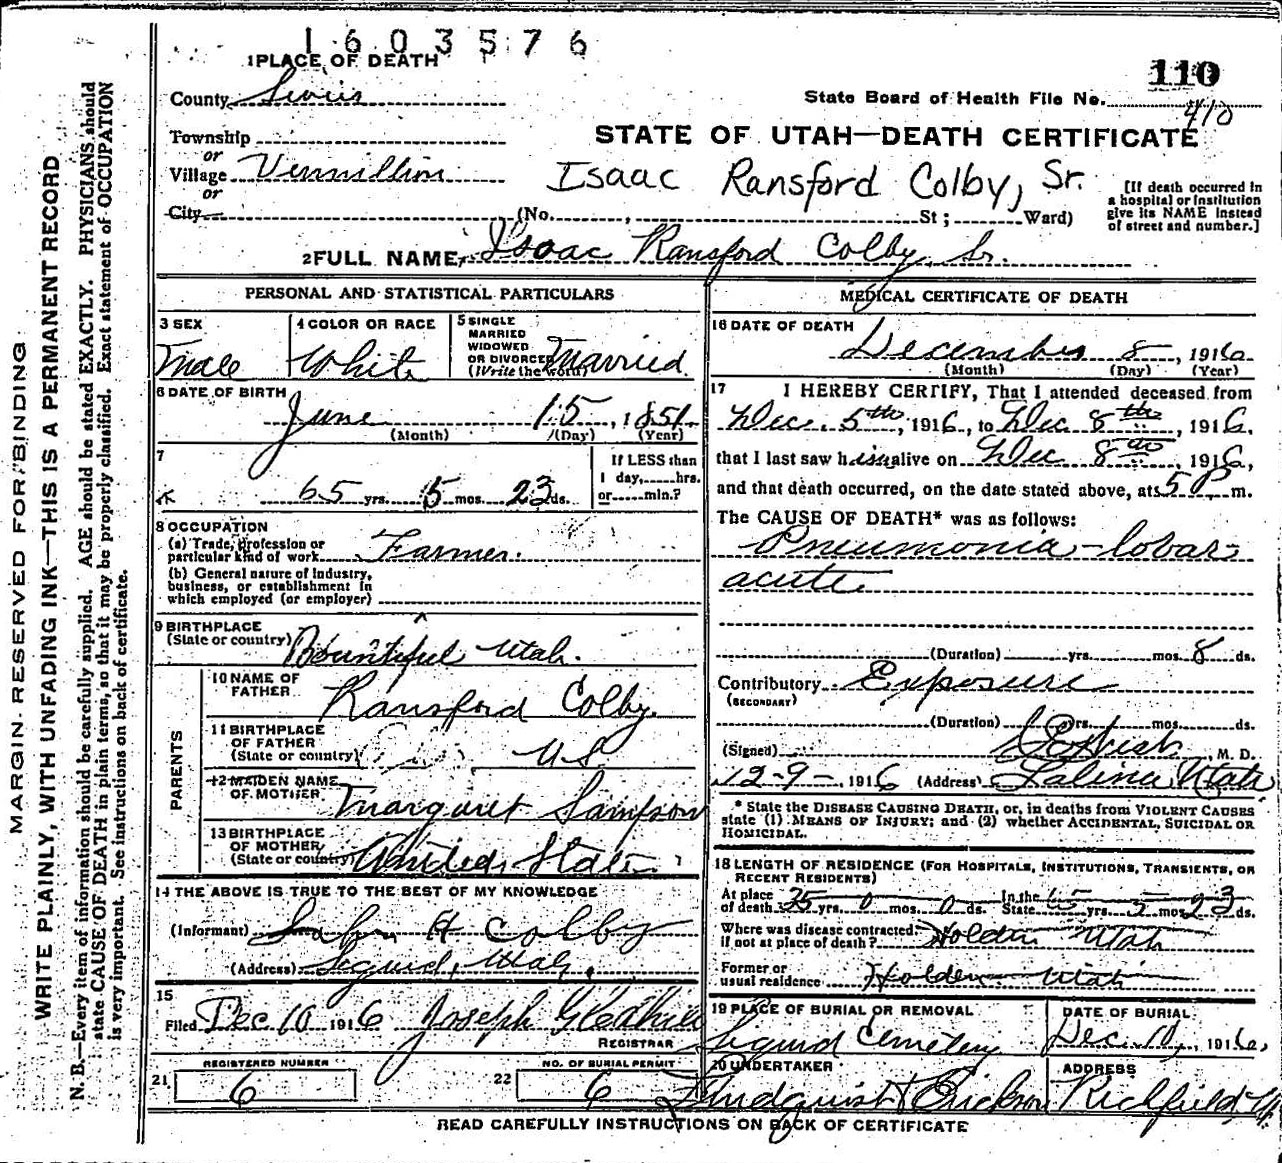 1603576
1 PLACE OF DEATH
110
County Sevier
State Board of Health File No. 410
Township
STATE OF UTAH—DEATH CERTIFICATE
or
Village Vermillion
Isaac Ransford Colby, Sr.
[If death occurred in
a hospital or institution
give its NAME instead
of street and number.]
or
City (No. , St; Ward)
2 FULL NAME, Isaac Ransford Colby, Sr.
PERSONAL AND STATISTICAL PARTICULARS
3 SEX
Male
4 COLOR OR RACE
White
5 SINGLE
MARRIED
WIDOWED
OR DIVORCED
(Write the word)
Married
6 DATE OF BIRTH
June 15, 1851
(Month) (Day) (Year)
7
65 yrs. 5 mos. 23 ds.
If LESS than
1 day, hrs.
or min.?
8 OCCUPATION
(a) Trade, profession or
particular kind of work Farmer.
(b) General nature of industry,
business, or establishment in
which employed (or employer)
9 BIRTHPLACE
(State or country) Bountiful Utah.
PARENTS
10 NAME OF
FATHER Ransford Colby.
11 BIRTHPLACE
OF FATHER
(State or country) U S
12 MAIDEN NAME
OF MOTHER Margaret Sampson
13 BIRTHPLACE
OF MOTHER
(State or country) United States
14 THE ABOVE IS TRUE TO THE BEST OF MY KNOWLEDGE
(Informant) H Colby
(Address) Sigurd, Utah.
15
Filed Dec 10 1916 Joseph Gledhill
REGISTRAR
REGISTERED NUMBER
21 6
NO. OF BURIAL PERMIT
22 6
MEDICAL CERTIFICATE OF DEATH
16 DATE OF DEATH
December 8, 1916
(Month) (Day) (Year)
17 I HEREBY CERTIFY, That I attended deceased from
Dec. 5th, 1916, to Dec 8th, 1916,
that I last saw him alive on Dec 8, 1916,
and that death occurred, on the date stated above, at 5 P m.
The CAUSE OF DEATH* was as follows:
Pneumonia-lobar
acute
(Duration) yrs. mos. 8 ds.
Contributory Exposure
(SECONDARY)
(Duration) yrs. mos. ds.
(Signed) M. D.
12-9-1916 (Address) Salina Utah.
* State the DISEASE CAUSING DEATH, or, in deaths from VIOLENT CAUSES
state (1) MEANS OF INJURY; and (2) whether ACCIDENTAL, SUICIDAL OR
HOMICIDAL.
18 LENGTH OF RESIDENCE (FOR HOSPITALS, INSTITUTIONS, TRANSIENTS, OR
RECENT RESIDENTS)
At place
of death 25 yrs. 0 mos. 0 ds.
In the
State 65 yrs. 5 mos. 23 ds.
Where was disease contracted,
if not at place of death? Holden Utah
Former or
usual residence Holden Utah
19 PLACE OF BURIAL OR REMOVAL
Sigurd Cemetery
DATE OF BURIAL
Dec. 10, 1916,
20 UNDERTAKER
Lindquist & Erickson
ADDRESS
Richfield
READ CAREFULLY INSTRUCTIONS ON BACK OF CERTIFICATE
MARGIN RESERVED FOR BINDING
WRITE PLAINLY, WITH UNFADING INK—THIS IS A PERMANENT RECORD
N. B.—Every item of information should be carefully supplied. AGE should be stated EXACTLY. PHYSICIANS should
state CAUSE OF DEATH in plain terms, so that it may be properly classified. Exact statement of OCCUPATION
is very important. See instructions on back of certificate.